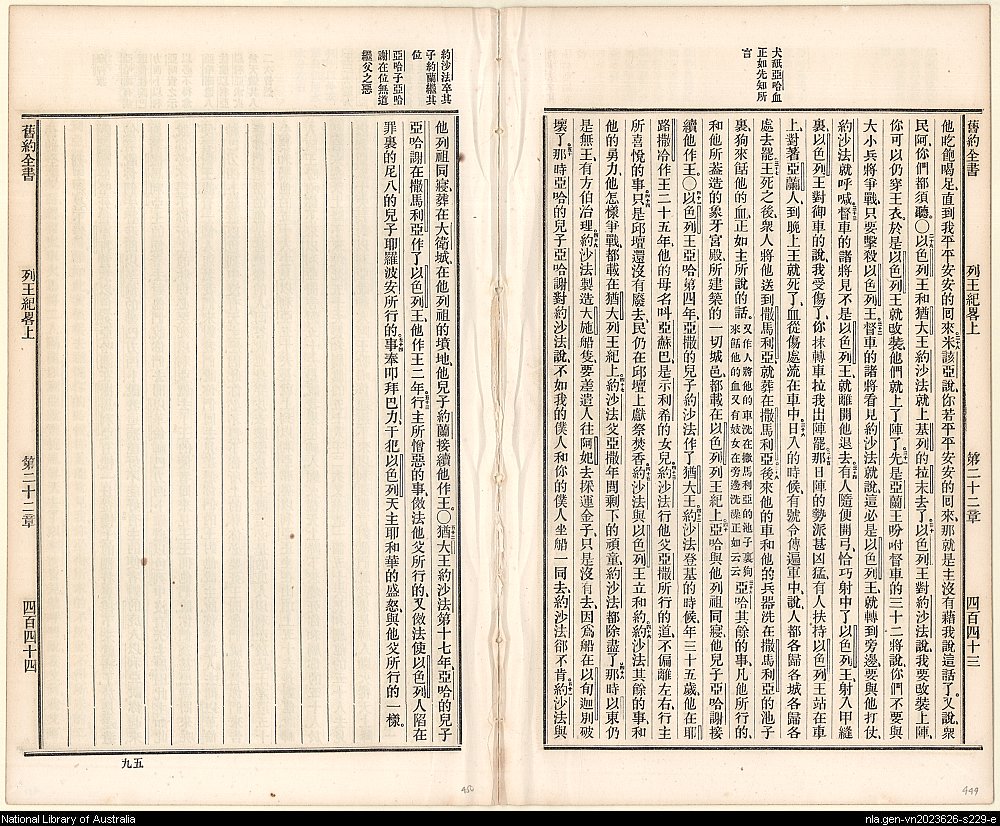 犬舐亞哈血
正如先知所
言
舊約全書 列王紀畧上 第二十二章 四百四十三
他吃飽喝足、直到我平平安安的囘來、米該亞說、你若平平安安的囘來、那就是主沒有藉我說這話了、又說、衆
民阿、你們都須聽。〇以色列王和猶大王約沙法就上基列的拉末去了、以色列王對約沙法說、我要改裝上陣、
你可以仍穿王衣、於是以色列王就改裝、他們就上了陣了、先是亞蘭王吩咐督車的三十二將說、你們不要與
大小兵將爭戰、只要擊殺以色列王、督車的諸將看見約沙法就說、這必是以色列王、就轉到旁邊要與他打仗、
約沙法就呼喊、督車的諸將見不是以色列王、就離開他退去、有人隨便開弓、恰巧射中了以色列王、射入甲縫
裏、以色列王對御車的說、我受傷了、你抹轉車拉我出陣罷、那日陣的勢派甚凶猛、有人扶持以色列王站在車
上對著亞蘭人、到晚上王就死了、血從傷處流在車中、日入的時候、有號令傳遍軍中、說、人都各歸各城各歸各
處去罷、王死之後、衆人將他送到撒馬利亞、就葬在撒馬利亞、後來他的車和他的兵器洗在撒馬利亞的池子
裏、狗來舐他的血、正如主所說的話。又作人將他的車洗在撒馬利亞的池子裏狗來舐他的血又有妓女在旁邊洗澡正如云云亞哈其餘的事、凡他所行的、
和他所蓋造的象牙宮殿、所建築的一切城邑、都載在以色列列王紀上、亞哈與他列祖同寢、他兒子亞哈謝接
續他作王。〇以色列王亞哈第四年、亞撒的兒子約沙法作了猶大王、約沙法登基的時候、年三十五歲、他在耶
路撒冷作王二十五年、他的母名呌亞蘇巴、是示利希的女兒、約沙法行他父亞撒所行的道、不偏離左右、行主
所喜悅的事、只是邱壇還沒有廢去、民仍在邱壇上獻祭焚香、約沙法與以色列王立和約、約沙法其餘的事、和
他的勇力、他怎樣爭戰、都載在猶大列王紀上、約沙法父亞撒年間剩下的頑童、約沙法都除盡了、那時以東仍
是無王、有方伯治理、約沙法製造大施船隻、要差遣人往阿妃去採運金子、只是沒有去、因爲船在以旬迦別破
壞了、那時亞哈的兒子亞哈謝對約沙法說、不如我的僕人和你的僕人坐船一同去、約沙法卻不肯、約沙法與
約沙法卒其
子約蘭繼其
位
亞哈子亞哈
謝在位無道
繼父之惡
他列祖同寢、葬在大衛城、在他列祖的墳地、他兒子約蘭接續他作王。〇猶大王約沙法第十七年、亞哈的兒子
亞哈謝在撒馬利亞作了以色列王、他作王二年、行主所憎惡的事、傚法他父所行的、又傚法使以色列人陷在
罪裏的尼八的兒子耶羅波安所行的事、奉叩拜巴力、干犯以色列天主耶和華的盛怒、與他父所行的一樣。
舊約全書 列王紀畧上 第二十二章 四百四十四
九五
450
449
National Library of Australia
nla.gen-vn2023626-s229-e